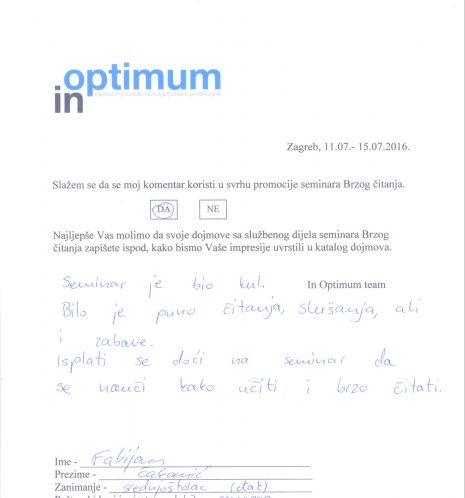 optimum
in
Zagreb, 11.07.- 15.07.2016.
Slažem se da se moj komentar koristi u svrhu promocije seminara Brzog čitanja.
DA NE
Najljepše Vas molimo da svoje dojmove sa službenog dijela seminara Brzog
čitanja zapišete ispod, kako bismo Vaše impresije uvrstili u katalog dojmova.
Seminar je bio kul. In Optimum team
Bilo je puno čitanja, slušanja, ali
i zabave.
Isplati se doći na seminar da
se nauči kako učiti i brzo čitati.
Ime - Fabijan
Prezime -
Zanimanje - srednjoškolac (đak)